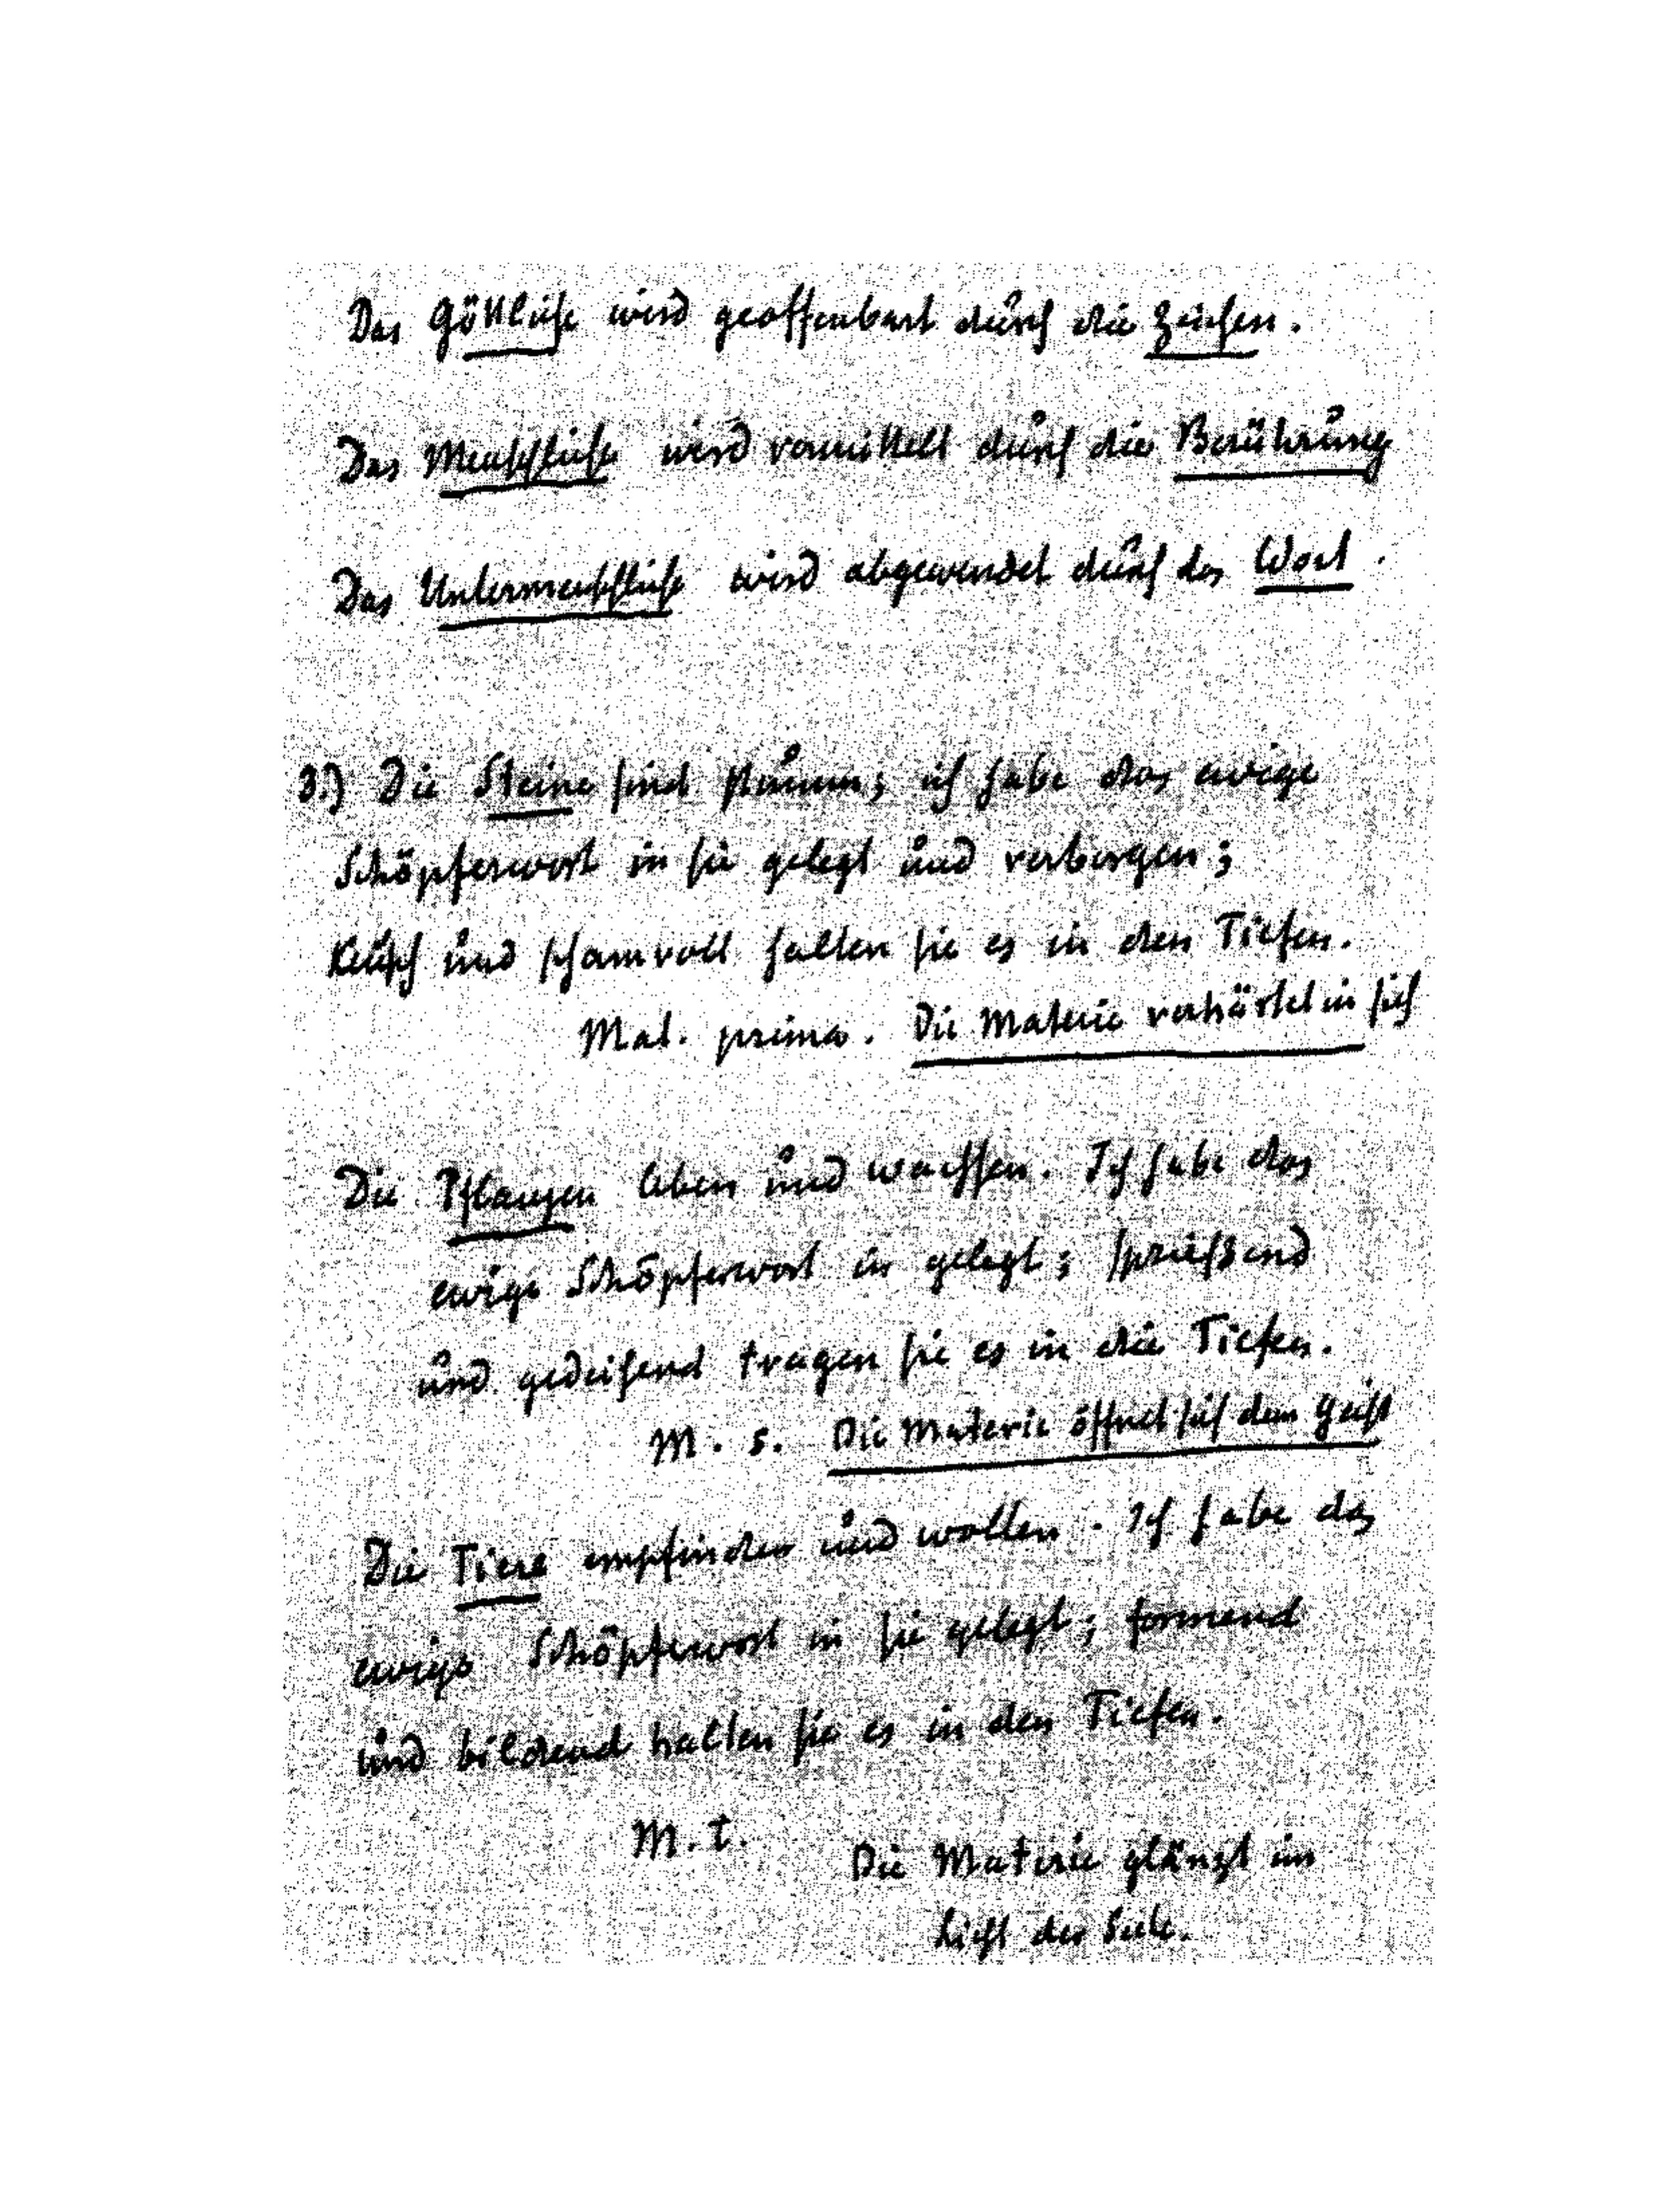 Das Göttliche wird geoffenbart durch die Zeichen.
Das Menschliche wird vermittelt durch die Berührung
Das Untermenschliche wird abgewendet durch das Wort.
3.) Die Steine sind stumm; ich habe das ewige
Schöpferwort in sie gelegt und verborgen;
keusch und schamvoll halten sie es in den Tiefen.
Mat. prima. Die Materie verhärtet in sich
Die Pflanzen leben und wachsen. Ich habe das
ewige Schöpferwort in gelegt; sprießend
und gedeihend tragen sie es in die Tiefen.
M. s. Die Materie öffnet sich dem Geist
Die Tiere empfinden und wollen. Ich habe das
ewige Schöpferwort in sie gelegt; formend
und bildend halten sie es in den Tiefen.
M. t. Die Materie glänzt im
Licht der Seele.